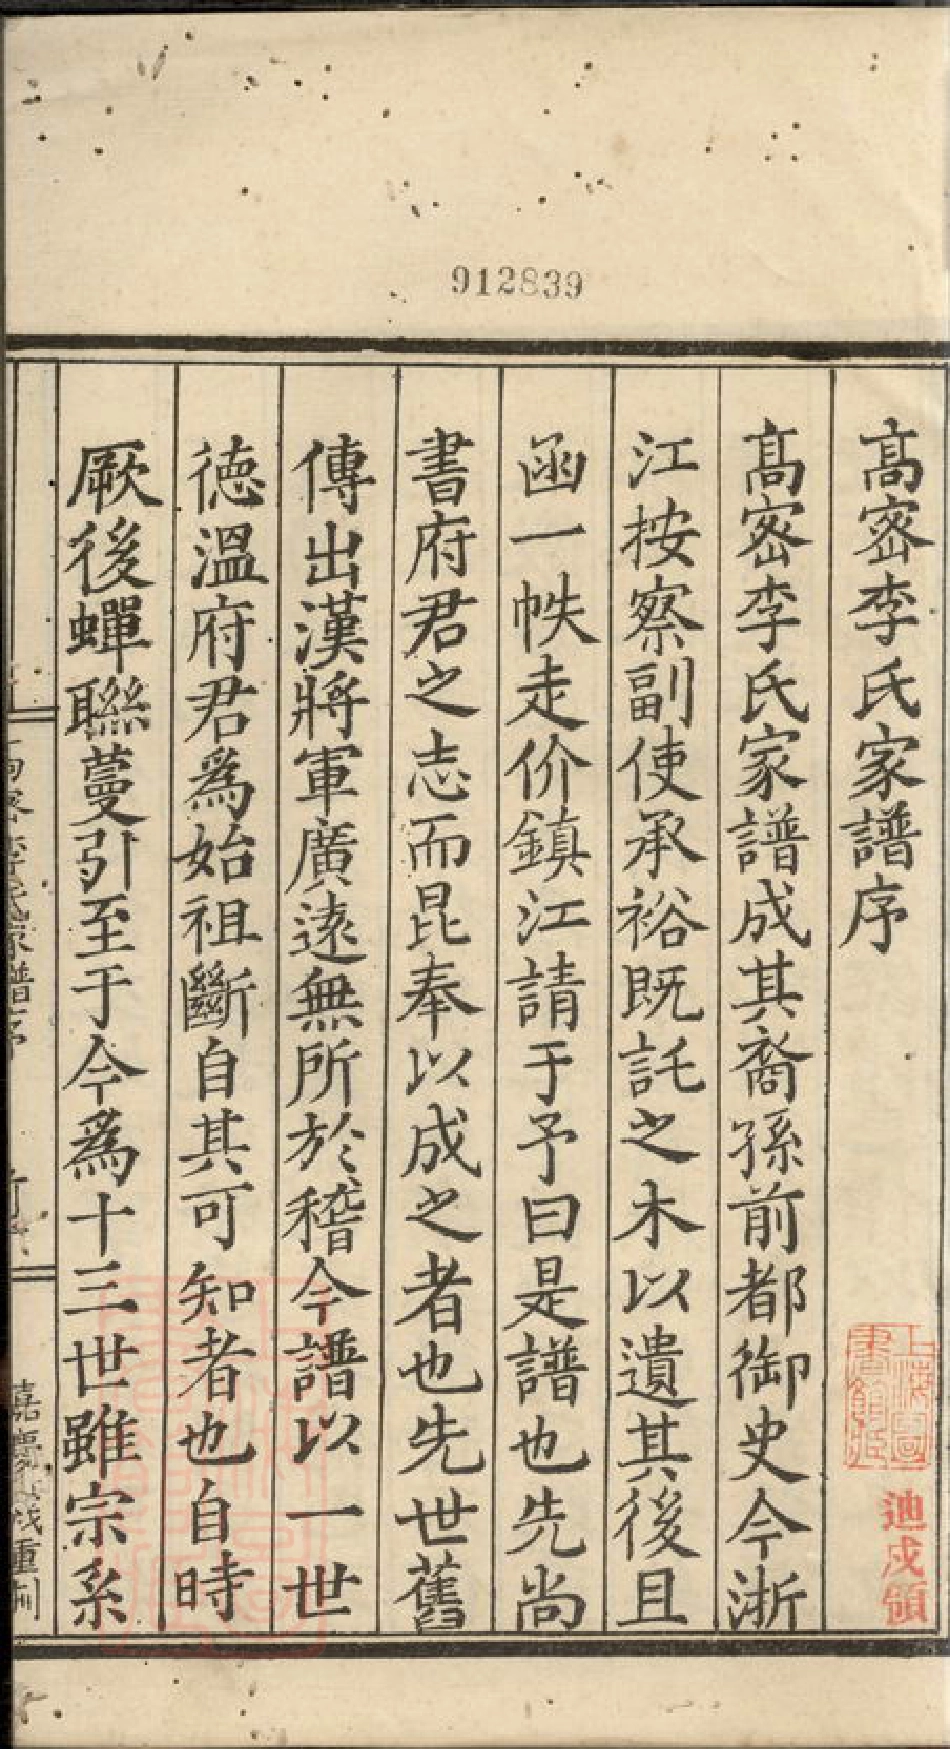 912839
髙宻李氏家譜序
髙宻李氏家譜成其裔孫前都御史今浙
江按察副使承裕既託之木以遺其後且
函一帙走价鎮江請于予曰是譜也先尚
書府君之志而昆奉以成之者也先世舊
傳出漢將軍廣逺無所於稽今譜以一世
徳溫府君爲始祖斷自其可知者也自時
厥後蟬聯蔓引至于今爲十三世雖宗系
上海圖
書館藏
迪戍領